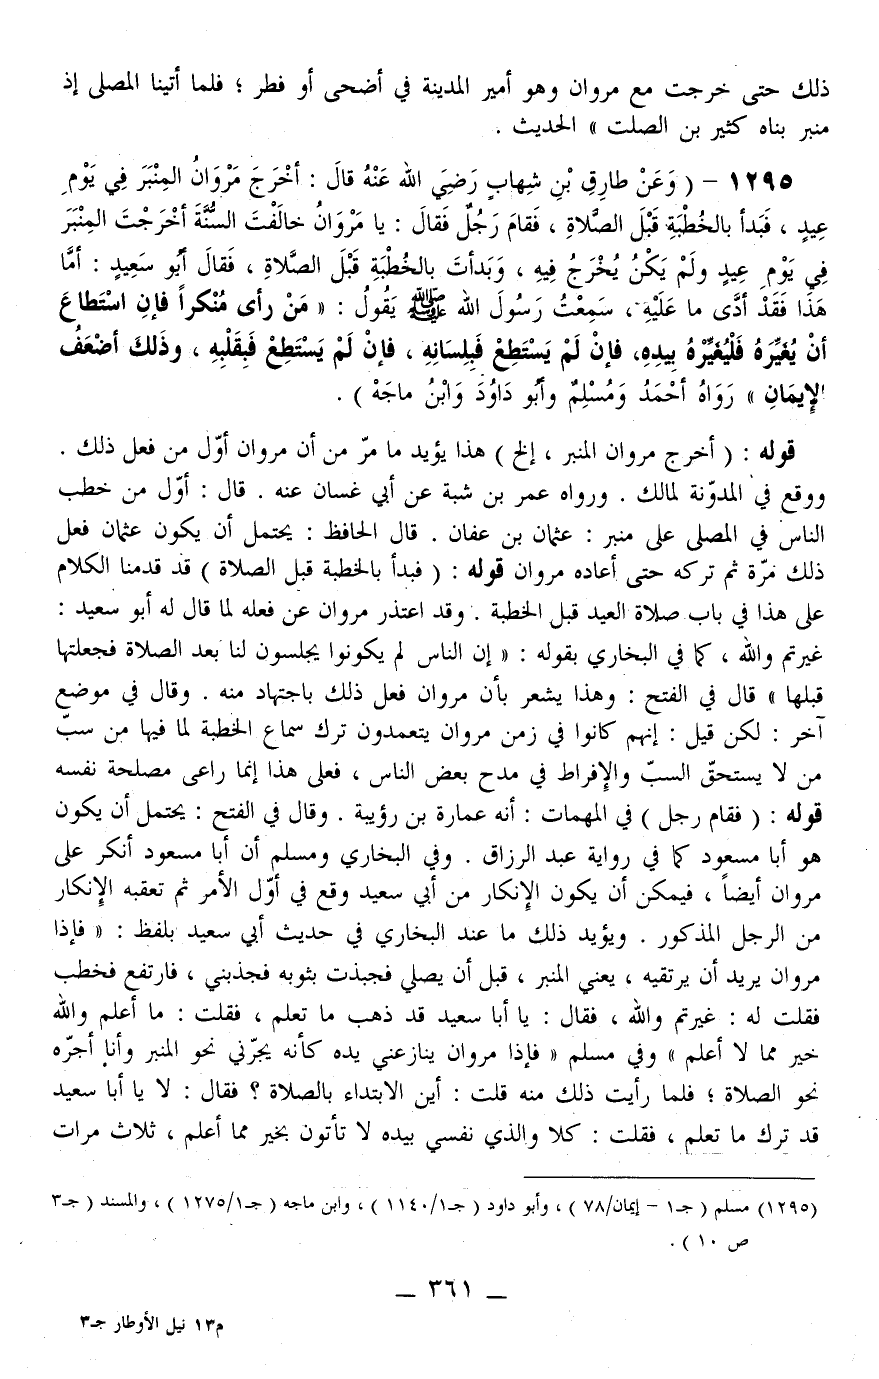 ذلك حتى خرجت مع مروان وهو أمير المدينة في أضحى أو فطر ؛ فلما أتينا المصلى إذ
منبر بناه كثير بن الصلت » الحديث .
١٢٩٥ – ( وَعَنْ طارِقِ بْنِ شِهابٍ رَضِيَ الله عَنْهُ قالَ : أخْرَجَ مَرْوَانُ المِنْبَرَ فِي يَوْمِ
عِيدٍ ، فَبَدأ بالخُطْبَةِ قَبْلَ الصَّلاةِ ، فَقامَ رَجُلٌ فَقالَ : يا مَرْوَانُ خالَفْتَ السُّنَّةَ أخْرَجْتَ المِنْبَرَ
فِي يَوْمِ عِيدٍ ولَمْ يَكُنْ يُخْرَجُ فِيهِ ، وَبَدأتَ بالخُطْبَةِ قَبْلَ الصَّلاةِ ، فَقالَ أبُو سَعِيدٍ : أمَّا
هَذَا فَقَدْ أدَّى ما عَلَيْهِ ، سَمِعْتُ رَسُولَ الله ﷺ يَقُولُ : « مَنْ رأى مُنْكراً فإنِ اسْتَطاعَ
أنْ يُغَيِّرَهُ فَلْيُغَيِّرْهُ بِيدِهِ، فإنْ لَمْ يَسْتَطِعْ فَبِلِسَانِهِ ، فإنْ لَمْ يَسْتَطِعْ فَبِقَلْبِهِ ، وذَلكَ أضْعَفُ
الإِيمَانِ » رَوَاهُ أحْمَدُ وَمُسْلِمٌ وأبُو دَاوُدَ وَابْنُ ماجَهْ ) .
قوله : ( أخرج مروان المنبر ، إلخ ) هذا يؤيد ما مرّ من أن مروان أوّل من فعل ذلك .
ووقع في المدوّنة لمالك . ورواه عمر بن شبة عن أبي غسان عنه . قال : أوّل من خطب
الناس في المصلى على منبر : عثمان بن عفان . قال الحافظ : يحتمل أن يكون عثمان فعل
ذلك مرّة ثم تركه حتى أعاده مروان قوله : ( فبدأ بالخطبة قبل الصلاة ) قد قدمنا الكلام
على هذا في باب صلاة العيد قبل الخطبة . وقد اعتذر مروان عن فعله لما قال له أبو سعيد :
غيرتم والله ، كما في البخاري بقوله : « إن الناس لم يكونوا يجلسون لنا بعد الصلاة فجعلتها
قبلها » قال في الفتح : وهذا يشعر بأن مروان فعل ذلك باجتهاد منه . وقال في موضع
آخر : لكن قيل : إنهم كانوا في زمن مروان يتعمدون ترك سماع الخطبة لما فيها من سبّ
من لا يستحقّ السبّ والإفراط في مدح بعض الناس ، فعلى هذا إنما راعى مصلحة نفسه
قوله : ( فقام رجل ) في المهمات : أنه عمارة بن رؤيبة . وقال في الفتح : يحتمل أن يكون
هو أبا مسعود كما في رواية عبد الرزاق . وفي البخاري ومسلم أن أبا مسعود أنكر على
مروان أيضاً ، فيمكن أن يكون الإنكار من أبي سعيد وقع في أوّل الأمر ثم تعقبه الإنكار
من الرجل المذكور . ويؤيد ذلك ما عند البخاري في حديث أبي سعيد بلفظ : « فإذا
مروان يريد أن يرتقيه ، يعني المنبر ، قبل أن يصلي فجبذت بثوبه فجذبني ، فارتفع فخطب
فقلت له : غيرتم والله ، فقال : يا أبا سعيد قد ذهب ما تعلم ، فقلت : ما أعلم والله
خير مما لا أعلم » وفي مسلم « فإذا مروان ينازعني يده كأنه يجرّني نحو المنبر وأنا أجرّه
نحو الصلاة ؛ فلما رأيت ذلك منه قلت : أين الابتداء بالصلاة ؟ فقال : لا يا أبا سعيد
قد ترك ما تعلم ، فقلت : كلا والذي نفسي بيده لا تأتون بخير مما أعلم ، ثلاث مرات
(١٢٩٥) مسلم ( جـ١ – إيمان/٧٨ ) ، وأبو داود ( جـ١/١١٤٠ ) ، وابن ماجه ( جـ١/١٢٧٥ ) ، والمسند ( جـ٣
ص ١٠ ) .
– ٣٦١ –
م١٣ نيل الأوطار جـ٣